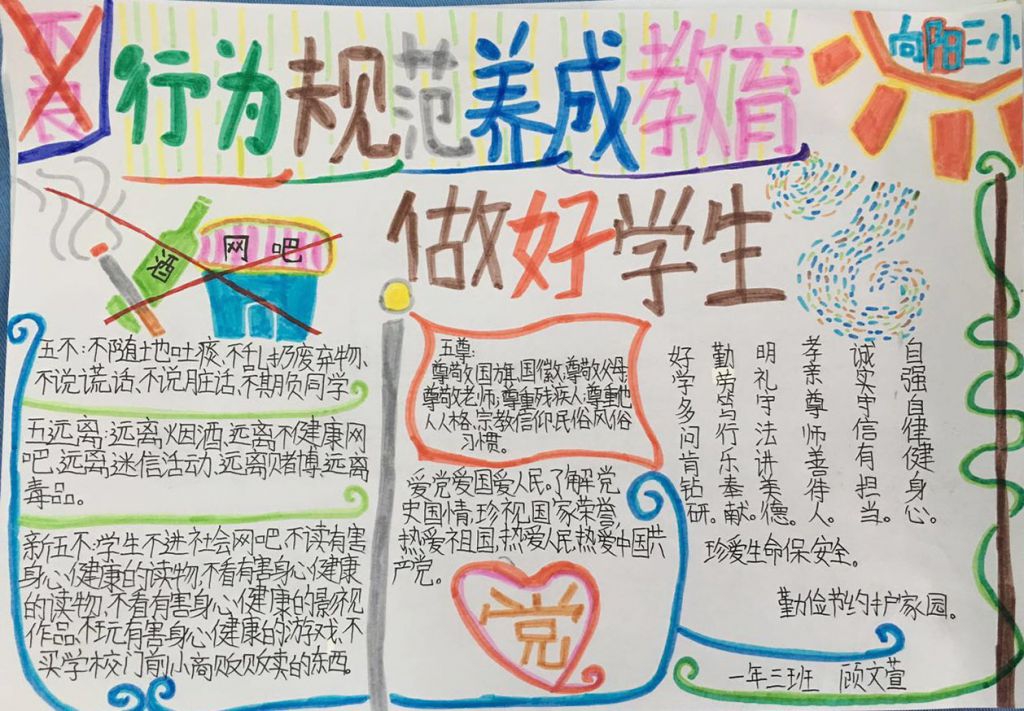 不良
行为规范养成教育
向阳三小
做好学生
酒
网吧
五不:不随地吐痰,不乱扔废弃物、
不说谎话、不说脏话、不欺负同学
五远离:远离烟酒,远离不健康网
吧,远离迷信活动,远离赌博,远离
毒品。
新五不:学生不进社会网吧,不读有害
身心健康的读物,不看有害身心健康
的读物,不看有害身心健康的影视
作品,不玩有害身心健康的游戏,不
买学校门前小商贩贩卖的东西。
五尊:
尊敬国旗、国徽;尊敬父母;
尊敬老师;尊重残疾人;尊重他
人人格、宗教信仰、民俗风俗
习惯。
爱党爱国爱人民。了解党
史国情,珍视国家荣誉,
热爱祖国,热爱人民,热爱中国共
产党。
党
好学多问肯钻研。
勤劳笃行乐奉献。
明礼守法讲美德。
孝亲尊师善待人。
诚实守信有担当。
自强自律健身心。
珍爱生命保安全。
勤俭节约护家园。
一年三班 顾文萱